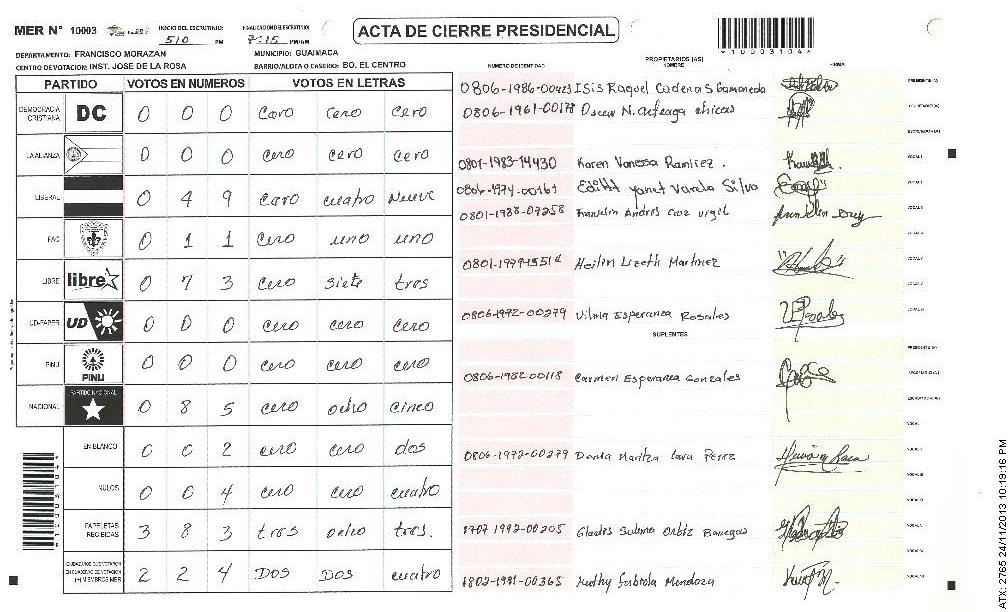 MER N° 10003 INICIO DEL ESCRUTINIO: 510 PM FINALIZACION DEL ESCRUTINIO: 7:15 PM/AM
ACTA DE CIERRE PRESIDENCIAL
*10003104*
DEPARTAMENTO: FRANCISCO MORAZAN MUNICIPIO: GUAIMACA
CENTRO DE VOTACION: INST. JOSE DE LA ROSA BARRIO/ALDEA O CASERIO: BO. EL CENTRO
NUMERO DE IDENTIDAD PROPIETARIOS (AS) NOMBRE FIRMA
PARTIDO VOTOS EN NUMEROS VOTOS EN LETRAS
DEMOCRACIA CRISTIANA DC 0 0 0 Cero Cero Cero
LA ALIANZA 0 0 0 cero cero cero
LIBERAL 0 4 9 Cero cuatro Nueve
PAC 0 1 1 Cero uno uno
LIBRE libre 0 7 3 Cero siete tres
UD-FAPER UD 0 0 0 cero cero cero
PINU PINU 0 0 0 cero cero cero
NACIONAL PARTIDO NACIONAL 0 8 5 cero ocho cinco
EN BLANCO 0 0 2 cero cero dos
NULOS 0 0 4 cero cero cuatro
PAPELETAS RECIBIDAS 3 8 3 tres ocho tres.
CIUDADANOS QUE VOTARON EN CUADERNO DE VOTACION (+) MIEMBROS MER 2 2 4 DOS DOS cuatro
0806-1986-00423 Isis Raquel Cadenas Bamaneda
0806-1961-00178 Oscar N. Arteaga chicas
0801-1983-14430 Karen Vanessa Ramirez.
0806-1974-00161 Edith Yanet Varela Silva
0801-1988-07258 Franklin Andres Cruz Virgil
Heilin Lizeth Martinez
0806-1972-00279 Vilma Esperanza Rosales
SUPLENTES
0806-1982-00118 Carmen Esperanza Gonzales
0806-1972-00279 Dania Maritza Lara Perez
1992-00205 Gladis Sulema Ortiz Banegas
1802-1981-00365 Kathy Fabiola Mendoza
ATX: 2765 24/11/2013 10:19:16 PM